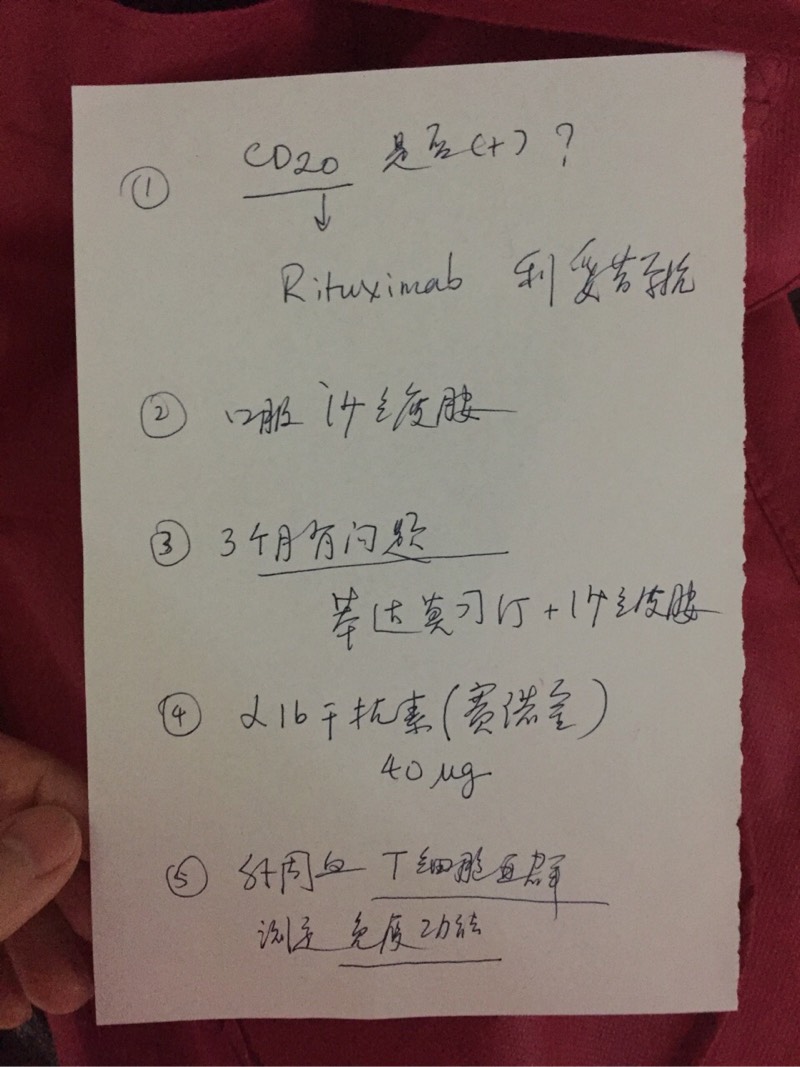 ① CD20 是否(+)?
↓
Rituximab 利妥昔单抗
② 口服 维皮胺
③ 3个月有问题
莫司汀+ 维皮胺
④ α1b干扰素(赛诺金)
40 μg
⑤ 外周血 T细胞亚群
测定 免疫功能